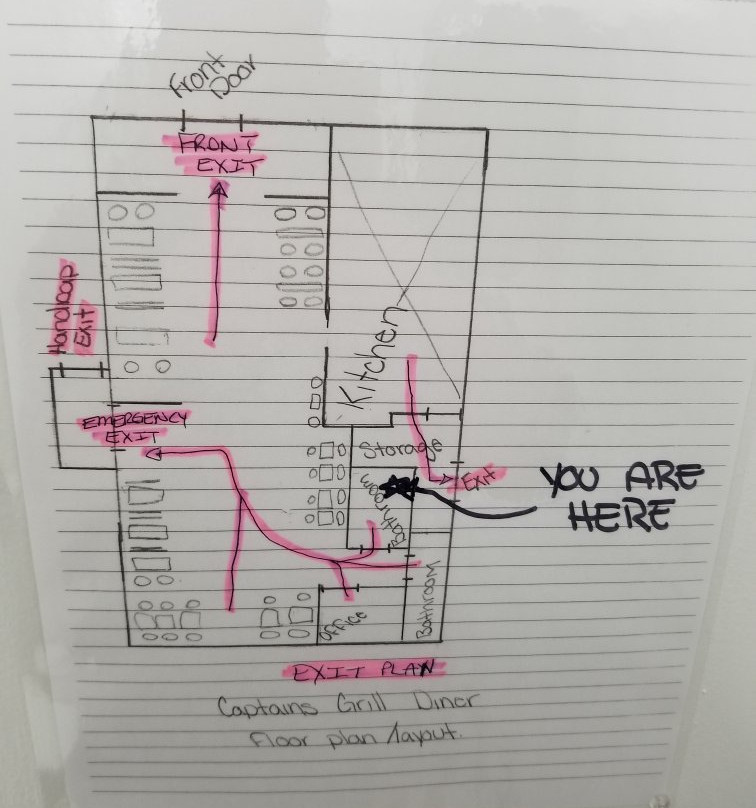 Front
Door
FRONT
EXIT
Handicap
EXIT
Kitchen
EMERGENCY
EXIT
Storage
Bathroom
Exit
YOU ARE
HERE
Bathroom
Office
EXIT PLAN
Captains Grill Diner
Floor plan/layout.